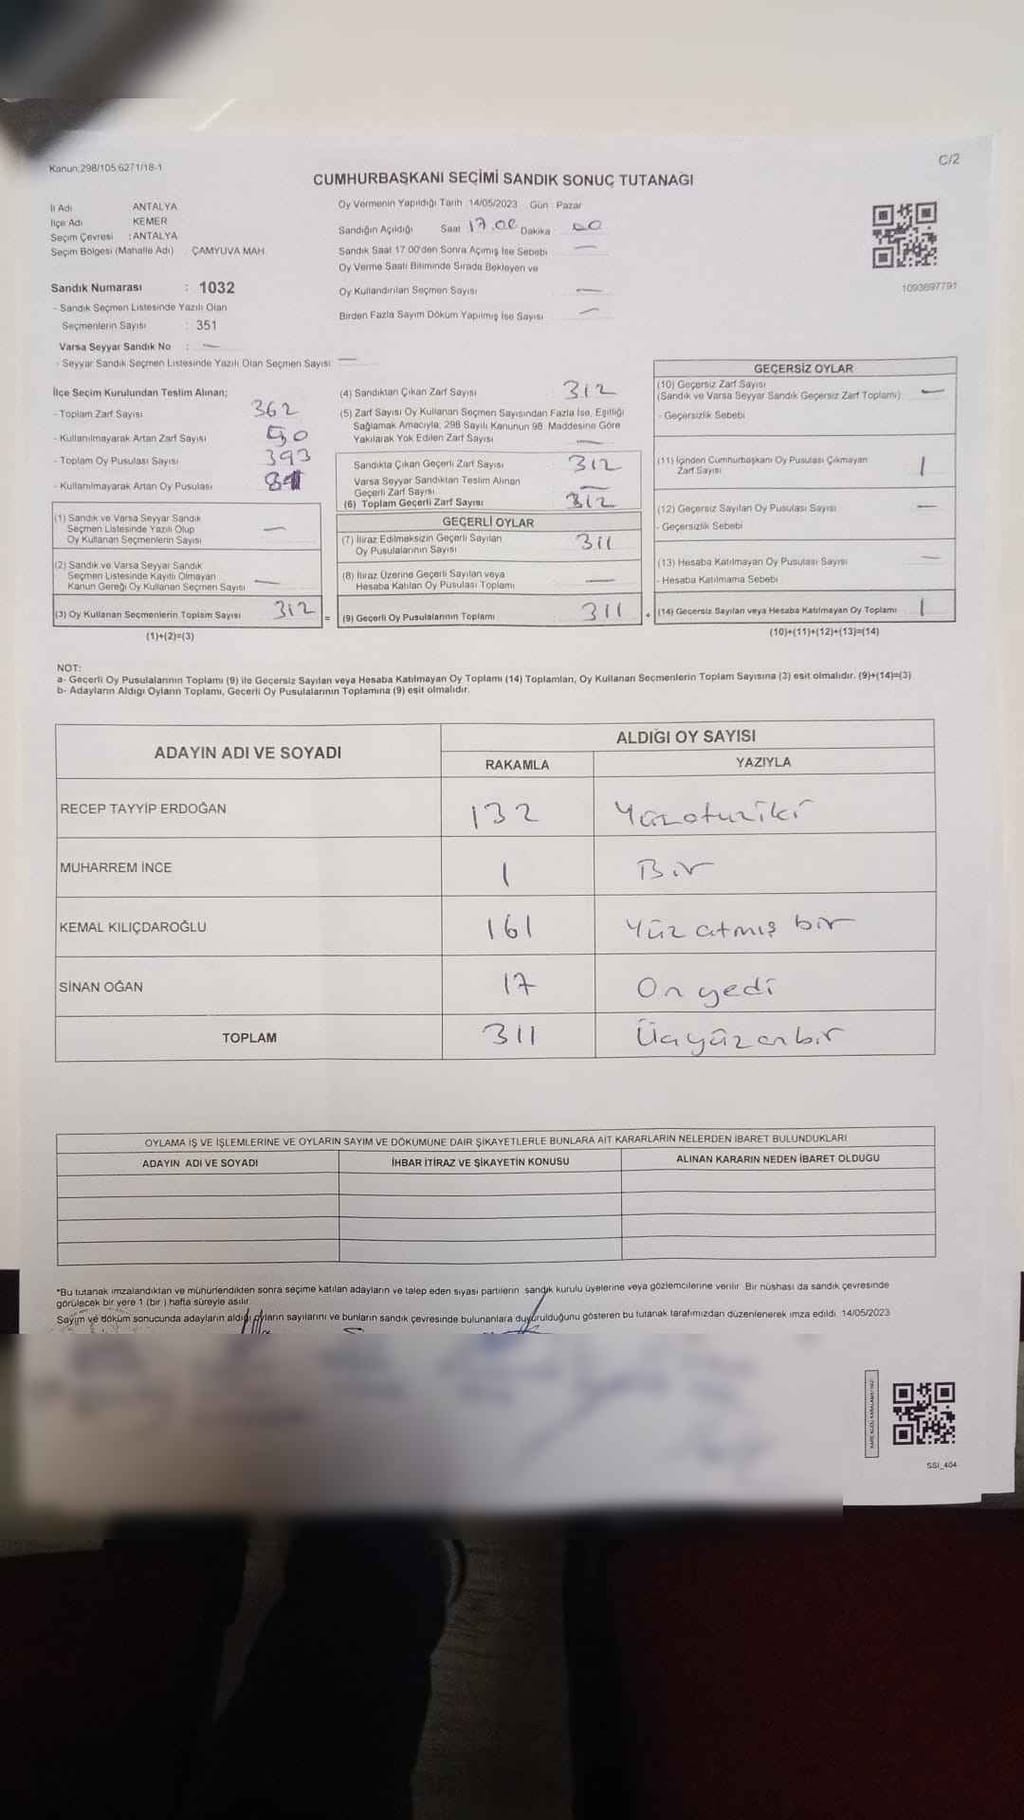 Kanun:298/105,6271/18-1
C/2
CUMHURBAŞKANI SEÇİMİ SANDIK SONUÇ TUTANAĞI
İl Adı ANTALYA
İlçe Adı KEMER
Seçim Çevresi : ANTALYA
Seçim Bölgesi (Mahalle Adı) ÇAMYUVA MAH
Oy Vermenin Yapıldığı Tarih 14/05/2023 Gün : Pazar
Sandığın Açıldığı Saat 17.00 Dakika 00
Sandık Saat 17.00'den Sonra Açımış İse Sebebi —
Oy Verme Saati Bitiminde Sırada Bekleyen ve
Oy Kullandırılan Seçmen Sayısı —
Birden Fazla Sayım Döküm Yapılmış İse Sayısı —
1093697791
Sandık Numarası : 1032
- Sandık Seçmen Listesinde Yazılı Olan
Seçmenlerin Sayısı : 351
Varsa Seyyar Sandık No : —
- Seyyar Sandık Seçmen Listesinde Yazılı Olan Seçmen Sayısı —
İlçe Seçim Kurulundan Teslim Alınan;
- Toplam Zarf Sayısı 362
- Kullanılmayarak Artan Zarf Sayısı 50
- Toplam Oy Pusulası Sayısı 393
- Kullanılmayarak Artan Oy Pusulası
(1) Sandık ve Varsa Seyyar Sandık
Seçmen Listesinde Yazılı Olup
Oy Kullanan Seçmenlerin Sayısı —
(2) Sandık ve Varsa Seyyar Sandık
Seçmen Listesinde Kayıtlı Olmayan
Kanun Gereği Oy Kullanan Seçmen Sayısı —
(3) Oy Kullanan Seçmenlerin Toplam Sayısı 312
(1)+(2)=(3)
(4) Sandıktan Çıkan Zarf Sayısı 312
(5) Zarf Sayısı Oy Kullanan Seçmen Sayısından Fazla İse, Eşitliği
Sağlamak Amacıyla, 298 Sayılı Kanunun 98. Maddesine Göre
Yakılarak Yok Edilen Zarf Sayısı —
Sandıkta Çıkan Geçerli Zarf Sayısı 312
Varsa Seyyar Sandıktan Teslim Alınan
Geçerli Zarf Sayısı —
(6) Toplam Geçerli Zarf Sayısı 312
GEÇERLİ OYLAR
(7) İtiraz Edilmeksizin Geçerli Sayılan
Oy Pusulalarının Sayısı 311
(8) İtiraz Üzerine Geçerli Sayılan veya
Hesaba Katılan Oy Pusulası Toplamı —
= (9) Geçerli Oy Pusulalarının Toplamı 311 +
GEÇERSİZ OYLAR
(10) Geçersiz Zarf Sayısı
(Sandık ve Varsa Seyyar Sandık Geçersiz Zarf Toplamı) —
- Geçersizlik Sebebi
(11) İçinden Cumhurbaşkanı Oy Pusulası Çıkmayan
Zarf Sayısı 1
(12) Geçersiz Sayılan Oy Pusulası Sayısı —
- Geçersizlik Sebebi
(13) Hesaba Katılmayan Oy Pusulası Sayısı —
- Hesaba Katılmama Sebebi
(14) Geçersiz Sayılan veya Hesaba Katılmayan Oy Toplamı 1
(10)+(11)+(12)+(13)=(14)
NOT:
a- Geçerli Oy Pusulalarının Toplamı (9) ile Geçersiz Sayılan veya Hesaba Katılmayan Oy Toplamı (14) Toplamları, Oy Kullanan Seçmenlerin Toplam Sayısına (3) eşit olmalıdır. (9)+(14)=(3)
b- Adayların Aldığı Oyların Toplamı, Geçerli Oy Pusulalarının Toplamına (9) eşit olmalıdır.
ADAYIN ADI VE SOYADI
ALDIĞI OY SAYISI
RAKAMLA YAZIYLA
RECEP TAYYİP ERDOĞAN 132 Yüzotuziki
MUHARREM İNCE 1 Bir
KEMAL KILIÇDAROĞLU 161 Yüz atmış bir
SİNAN OĞAN 17 On yedi
TOPLAM 311 Üçyüz onbir
OYLAMA İŞ VE İŞLEMLERİNE VE OYLARIN SAYIM VE DÖKÜMÜNE DAİR ŞİKAYETLERLE BUNLARA AİT KARARLARIN NELERDEN İBARET BULUNDUKLARI
ADAYIN ADI VE SOYADI İHBAR İTİRAZ VE ŞİKAYETİN KONUSU ALINAN KARARIN NEDEN İBARET OLDUĞU
*Bu tutanak imzalandıktan ve mühürlendikten sonra seçime katılan adayların ve talep eden siyasi partilerin sandık kurulu üyelerine veya gözlemcilerine verilir. Bir nüshası da sandık çevresinde
görülecek bir yere 1 (bir ) hafta süreyle asılır
Sayım ve döküm sonucunda adayların aldığı oyların sayılarını ve bunların sandık çevresinde bulunanlara duyurulduğunu gösteren bu tutanak tarafımızdan düzenlenerek imza edildi. 14/05/2023
SSI_404